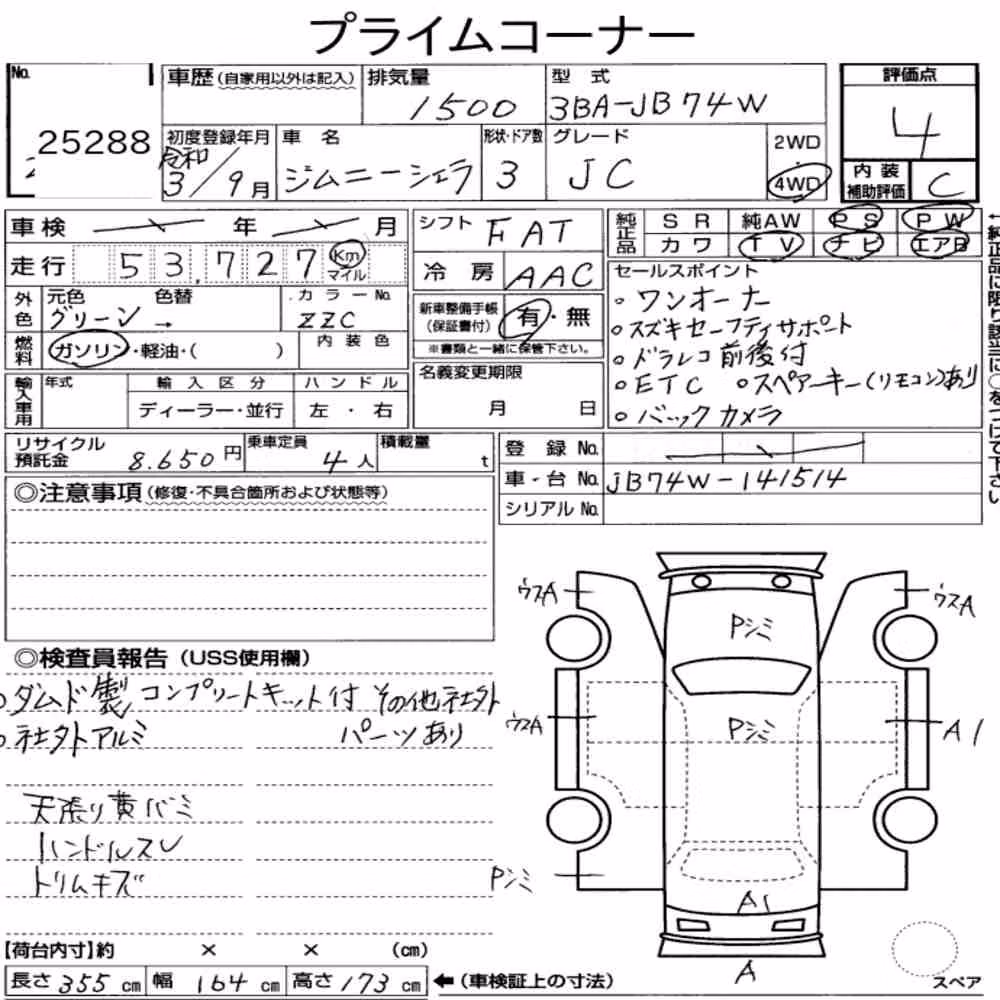 プライムコーナー
No.
25288
車歴(自家用以外は記入)
排気量
1500
型 式
3BA-JB74W
評価点
4
初度登録年月
令和
3/9月
車 名
ジムニーシエラ
形状・ドア数
3
グレード
JC
2WD
・
4WD
内 装
補助評価
C
車検 年 月
走行 53,727 Km
マイル
シフト FAT
冷 房 AAC
純正品
SR 純AW PS PW
カワ TV ナビ エアB
←純正品に限り該当に○をつけて下さい
外色
元色 色替
グリーン →
カラーNo.
ZZC
燃料
ガソリン・軽油・( )
内装色
新車整備手帳
(保証書付)
有・無
※書類と一緒に保管下さい。
セールスポイント
○ワンオーナー
○スズキセーフティサポート
○ドラレコ前後付
○ETC ○スペアーキー(リモコン)あり
○バックカメラ
輸入車用
年式
輸入区分
ハンドル
ディーラー・並行
左・右
名義変更期限
月 日
リサイクル
預託金
8.650円
乗車定員
4人
積載量
t
登 録 No.
車・台 No. JB74W-141514
シリアル No.
◎注意事項(修復・不具合箇所および状態等)
◎検査員報告(USS使用欄)
○ダムド製コンプリートキット付 その他社外
○社外アルミ パーツあり
天張り黄バミ
ハンドルスレ
トリムキズ
ウスA
ウスA
Pシミ
ウスA
Pシミ
A1
Pシミ
A1
A
スペア
【荷台内寸】約 × × (cm)
長さ 355 cm 幅 164 cm 高さ 173 cm ←(車検証上の寸法)